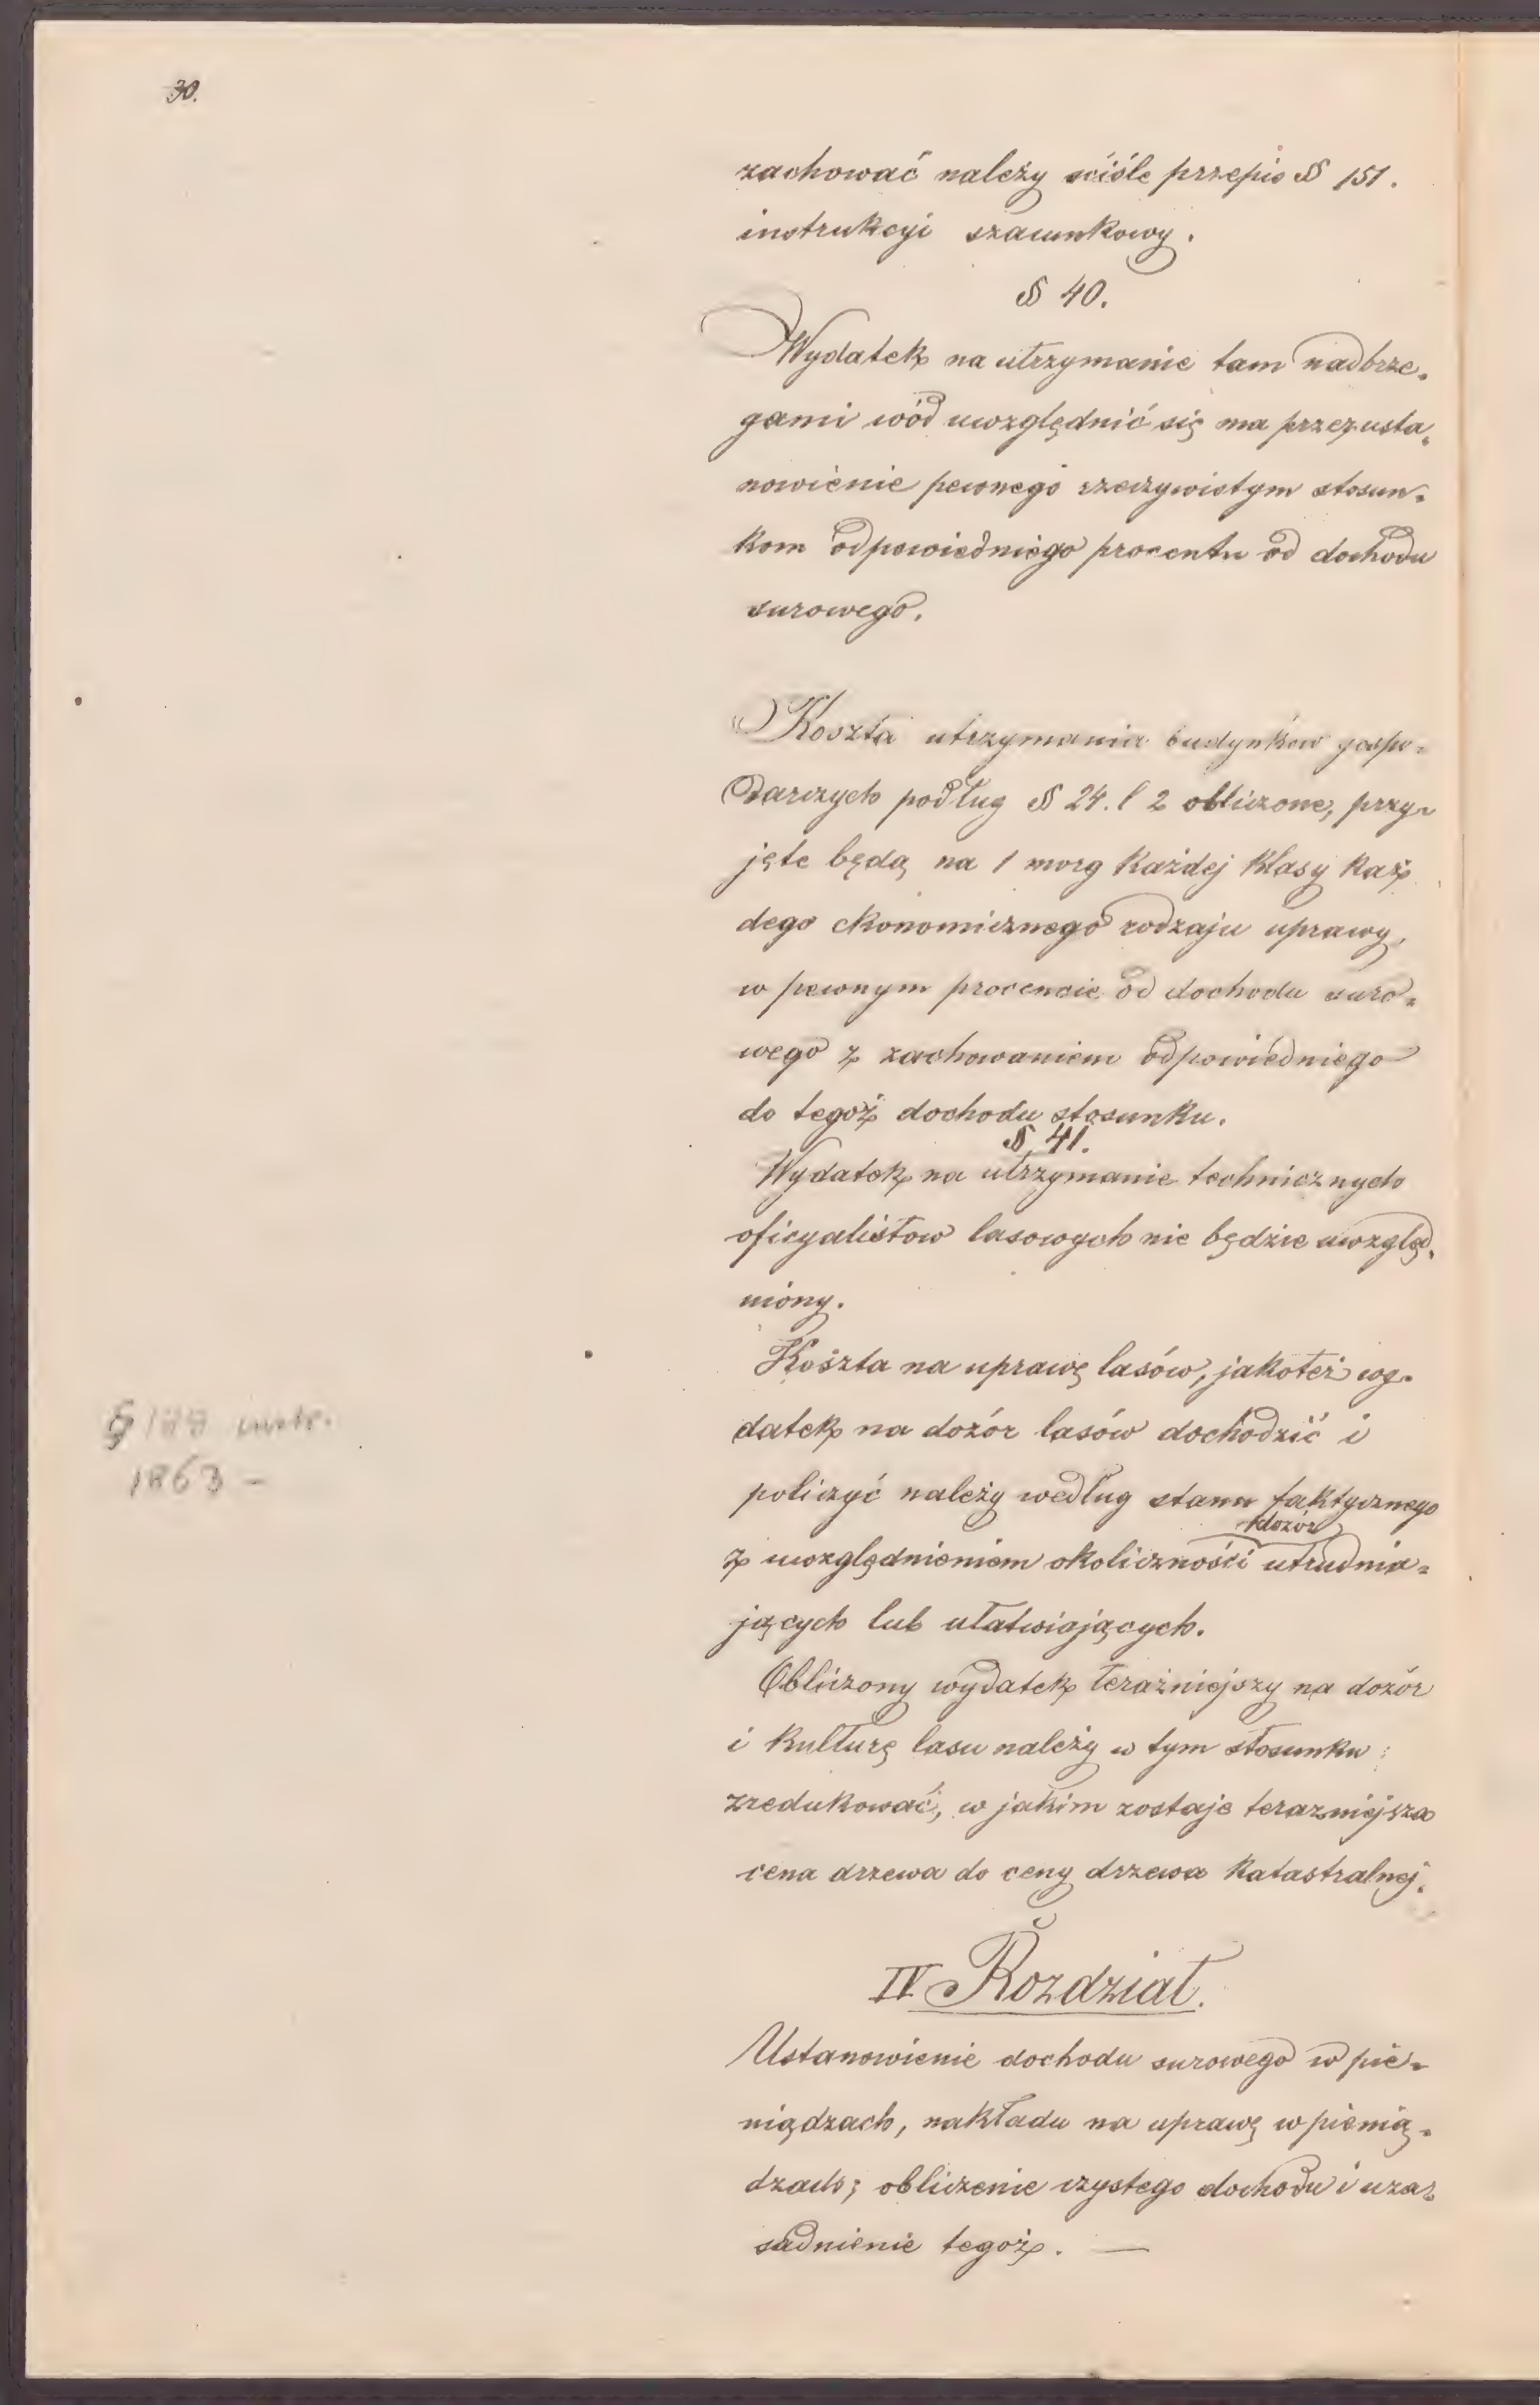 30.
zachować należy ściśle przepis § 151.
instrukcyi szacunkowy.
§ 40.
Wydatek na utrzymanie tam nadbrze-
gami wód uwzględnić się ma przez usta-
nowienie pewnego rzeczywistym stosun-
kom odpowiedniego procentu od dochodu
surowego.
Koszta utrzymania budynków gospo-
darczych podług § 24. l 2 obliczone, przy-
jęte będą na 1 morg każdej klasy każ
dego ekonomicznego rodzaju uprawy,
w pewnym procencie od dochodu suro-
wego z zachowaniem odpowiedniego
do tegoż dochodu stosunku.
§ 41.
Wydatek na utrzymanie technicznych
oficyalistow lasowych nie będzie uwzględ-
niony.
Koszta na uprawę lasów, jakoteż wy-
datek na dozór lasów dochodzić i
policzyć należy według stanu faktycznego
dozór
z uwzględnieniem okoliczności utrudnia-
jących lub ułatwiających.
Obliczony wydatek teraźniejszy na dozór
i kulturę lasu należy w tym stosunku
zredukować, w jakim zostaje terazniejsza
cena drzewa do ceny drzewa katastralnej.
§ instr.
1863 –
IV Rozdział.
Ustanowienie dochodu surowego w pie-
niądzach, nakładu na uprawę w pienią-
dzach; obliczenie czystego dochodu i uza-
sadnienie tegoż. —